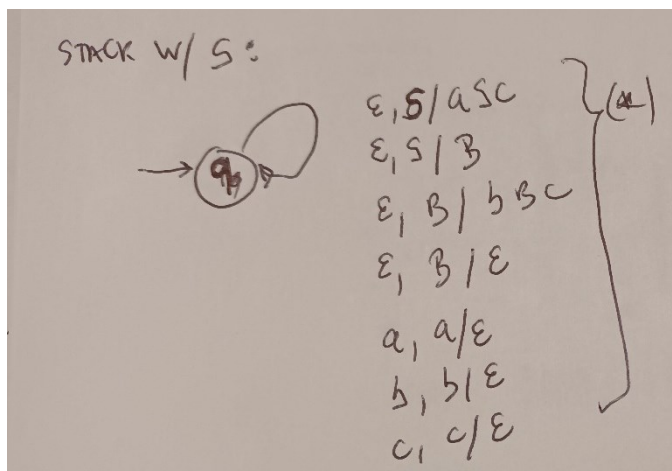 STACK W/ S:
ε, S/aSc
ε, S/B
ε, B/bBc
ε, B/ε
a, a/ε
b, b/ε
c, c/ε